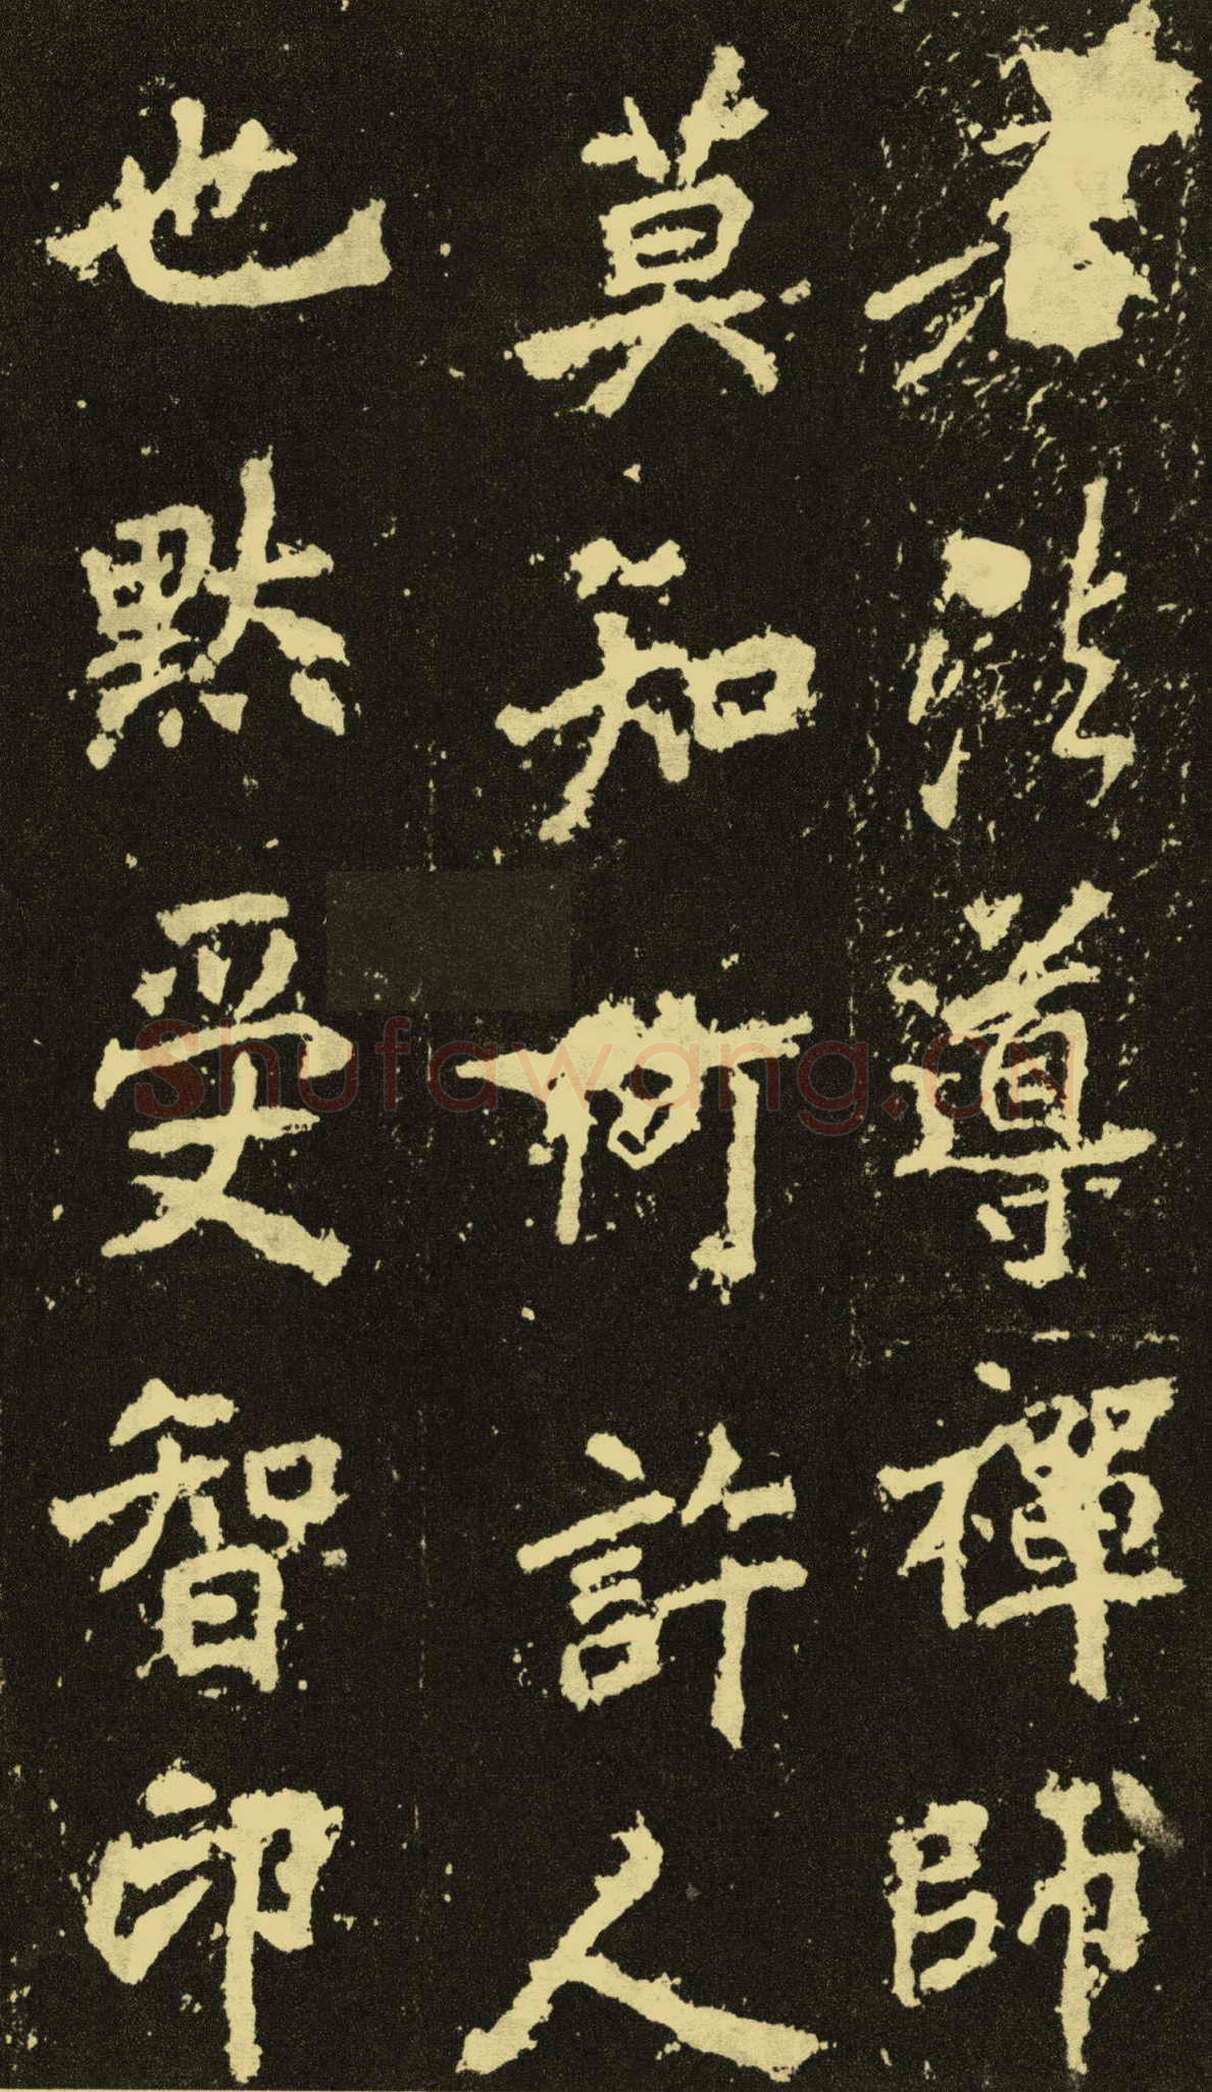 法導禪師
莫知所許人
也默受智印
Shufawang.cn